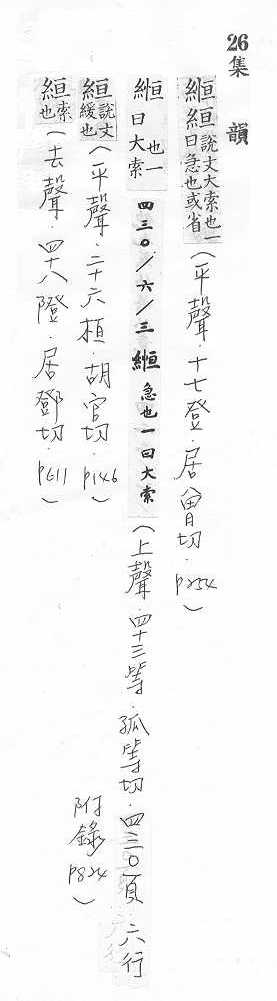 26集 韻
縆絙說文大索也一曰急也或省(平聲.十七登.居曾切.p254)
縆曰大索也一 四三○/六/三 縆急也一曰大索(上聲.四十三等.孤等切.四三○頁.六行
附錄p824)
絙說文緩也(平聲.二十六桓.胡官切.p146)
絙索也(去聲.四十八隥.居鄧切.p611)